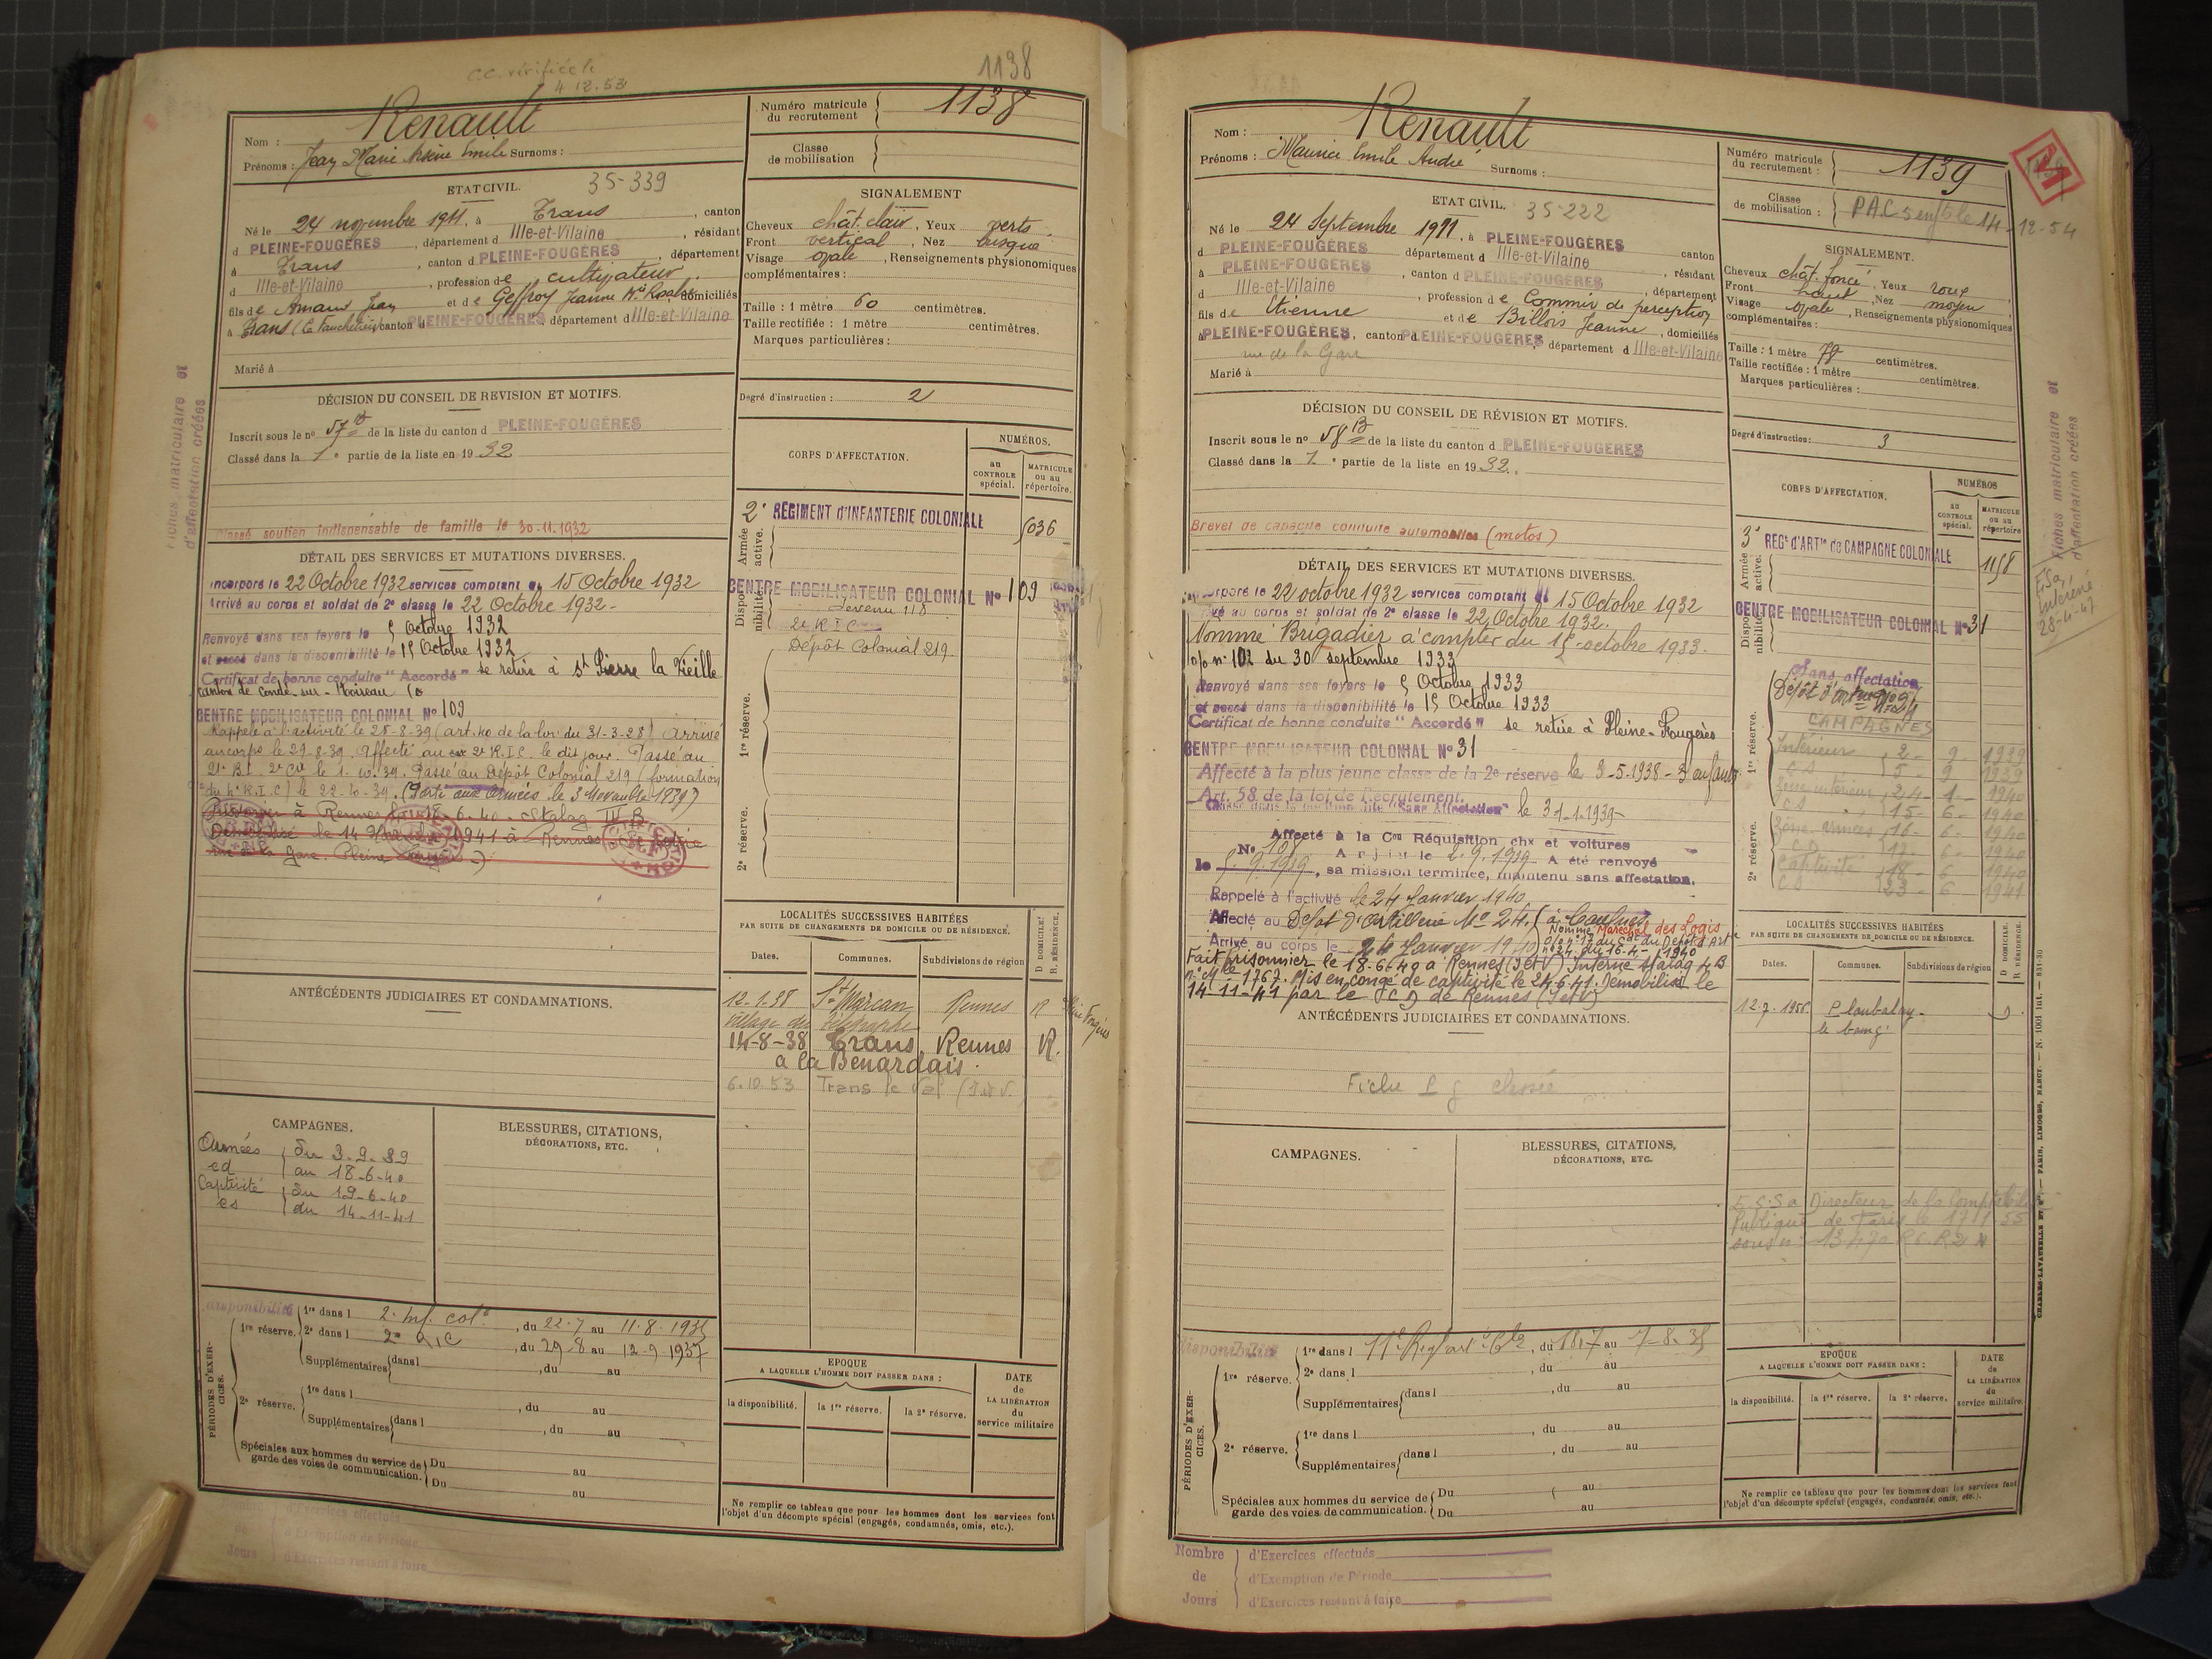 C.C. vérifiée le
4 12.53
1138
Nom : Renault
Prénoms : Jean Marie Arsène Emile Surnoms :
Numéro matricule du recrutement 1138
Classe de mobilisation
ETAT CIVIL. 35-339
Né le 24 novembre 1911, à Trans, canton
d PLEINE-FOUGÈRES, département d Ille-et-Vilaine, résidant
à Trans, canton d PLEINE-FOUGÈRES, département
d Ille-et-Vilaine, profession de cultivateur
fils de Amand Jean et de Geffroy Jeanne Mie Rosalie, domiciliés
à Trans canton PLEINE-FOUGÈRES département d Ille-et-Vilaine
Marié à
SIGNALEMENT
Cheveux chât. clair, Yeux verts
Front vertical, Nez busqué
Visage ovale, Renseignements physionomiques
complémentaires :
Taille : 1 mètre 60 centimètres.
Taille rectifiée : 1 mètre centimètres.
Marques particulières :
Degré d'instruction : 2
DÉCISION DU CONSEIL DE REVISION ET MOTIFS.
Inscrit sous le no 57 de la liste du canton d PLEINE-FOUGÈRES
Classé dans la 1e partie de la liste en 1932
Classé soutien indispensable de famille le 30.11.1932
Fiches matriculaire et
d'affectation créées
DÉTAIL DES SERVICES ET MUTATIONS DIVERSES.
Incorporé le 22 Octobre 1932 services comptant du 15 Octobre 1932
Arrivé au corps et soldat de 2e classe le 22 Octobre 1932 -
Renvoyé dans ses foyers le 5 Octobre 1932
et passé dans la disponibilité le 15 Octobre 1932
Certificat de bonne conduite "Accordé" se retire à St Pierre la Vieille
canton de Condé-sur-Noireau
CENTRE MOBILISATEUR COLONIAL No 109
Rappelé à l'activité le 28-8-39 (art. 40 de la loi du 31-3-28) Arrivé
au corps le 29-8-39. Affecté au 2e R.I.C. le dit jour. Passé au
21e B.I. 2e Cie le 1-10-39. Passé au Dépôt Colonial 219 (formation
du 4e R.I.C) le 22-10-39. (Parti aux Armées le 3 Novembre 1939)
Prisonnier à Rennes le 18-6-40 - Stalag IV B
Démobilisé le 14 1941 à Rennes
rue de la Gare Pleine
CORPS D'AFFECTATION.
NUMÉROS.
au CONTROLE spécial.
MATRICULE ou au répertoire.
Armée active.
2e RÉGIMENT d'INFANTERIE COLONIALE 5036
Disponibilité
CENTRE MOBILISATEUR COLONIAL No 109
devenu 118
2e R I C
Dépôt Colonial 219
1re réserve.
2e réserve.
LOCALITÉS SUCCESSIVES HABITÉES
PAR SUITE DE CHANGEMENTS DE DOMICILE OU DE RÉSIDENCE.
D DOMICILE.
R. RÉSIDENCE.
Dates. Communes. Subdivisions de région
12.1.38 St Marcan Rennes R
Village de
14-8-38 Trans Rennes R.
a la Benardais.
6.10.53 Trans le Val (I et V.
ANTÉCÉDENTS JUDICIAIRES ET CONDAMNATIONS.
CAMPAGNES.
Armées du 3-9-39
cd au 18-6-40
Captivité du 19-6-40
cs du 14-11-41
BLESSURES, CITATIONS,
DÉCORATIONS, ETC.
PÉRIODES D'EXERCICES.
disponibilité
1re réserve. 1re dans l 2e inf. colle, du 22-7 au 11-8-1935
2e dans l 2e R.I.C, du 29-8 au 12-9-1937
Supplémentaires dans l, du au
2e réserve. 1re dans l, du au
Supplémentaires dans l, du au
Spéciales aux hommes du service de garde des voies de communication. Du au
Du au
EPOQUE
A LAQUELLE L'HOMME DOIT PASSER DANS :
la disponibilité. la 1re réserve. la 2e réserve.
DATE de LA LIBÉRATION du service militaire
Ne remplir ce tableau que pour les hommes dont les services font
l'objet d'un décompte spécial (engagés, condamnés, omis, etc.).
d'Exercices effectués
d'Exemption de Période
Jours d'Exercices restant à faire
Nom : Renault
Prénoms : Maurice Emile André Surnoms :
Numéro matricule du recrutement : 1139
M
Classe de mobilisation : P.A.C 5 enfts le 14-12-54
ETAT CIVIL. 35-222
Né le 24 Septembre 1911, à PLEINE-FOUGÈRES
d PLEINE-FOUGÈRES département d Ille-et-Vilaine canton
à PLEINE-FOUGÈRES, canton d PLEINE-FOUGÈRES, résidant
d Ille-et-Vilaine, profession de Commis de perception, département
fils de Etienne et de Billois Jeanne, domiciliés
à PLEINE-FOUGÈRES, canton PLEINE-FOUGÈRES département d Ille-et-Vilaine
rue de la Gare
Marié à
SIGNALEMENT.
Cheveux chât. foncé, Yeux roux
Front haut, Nez moyen
Visage ovale, Renseignements physionomiques
complémentaires :
Taille : 1 mètre 78 centimètres.
Taille rectifiée : 1 mètre centimètres.
Marques particulières :
Degré d'instruction : 3
DÉCISION DU CONSEIL DE RÉVISION ET MOTIFS.
Inscrit sous le no 58 B de la liste du canton d PLEINE-FOUGÈRES
Classé dans la 1e partie de la liste en 1932.
Brevet de capacité conduite automobiles (motos)
DÉTAIL DES SERVICES ET MUTATIONS DIVERSES.
Incorporé le 22 octobre 1932 services comptant du 15 Octobre 1932
Arrivé au corps et soldat de 2e classe le 22 Octobre 1932.
Nommé Brigadier à compter du 15 octobre 1933.
o/o no 102 du 30 septembre 1933
Renvoyé dans ses foyers le 5 Octobre 1933
et passé dans la disponibilité le 15 Octobre 1933
Certificat de bonne conduite "Accordé" se retire à Pleine-Fougères
CENTRE MOBILISATEUR COLONIAL No 31
Affecté à la plus jeune classe de la 2e réserve le 3-5-1938 - 3 enfants
Art. 58 de la loi de Recrutement.
Classé dans la position dite "Sans Affectation" le 31-1-1939
Affecté à la Cie Réquisition chx et voitures
No 108 A rejoint le 2.9.1939. A été renvoyé
le 5.9.1939, sa mission terminée, maintenu sans affectation.
Rappelé à l'activité le 24 Janvier 1940
Affecté au Dépôt d'Artillerie No 24. à Caulnes
Nommé Maréchal des Logis
Arrivé au corps le 24 Janvier 1940 du Dépôt d'Art no 24 du 16-4-1940
Fait prisonnier le 18-6-40 à Rennes (I et V) Interné Stalag 4 B
no Mle 1767. Mis en congé de captivité le 24-6-41. Démobilisé le
14-11-41 par le de Rennes (I et V)
CORPS D'AFFECTATION.
NUMÉROS
au CONTROLE spécial.
MATRICULE ou au répertoire
Armée active.
3e RÉGt d'ARTie de CAMPAGNE COLONIALE 1158
Disponibilité
CENTRE MOBILISATEUR COLONIAL No 31
Fiches matriculaire et
d'affectation créées
28-4-47
1re réserve.
2e réserve.
Sans affectation
CAMPAGNES
Intérieur 2 - 9 1939
CS 5 9 1939
Zone intérieur 24 - 1 - 1940
CS 15 - 6 - 1940
Zone armées 16 - 6 - 1940
17 - 6 - 1940
Captivité 18 - 6 1940
CS 23 - 6 1941
LOCALITÉS SUCCESSIVES HABITÉES
PAR SUITE DE CHANGEMENTS DE DOMICILE OU DE RÉSIDENCE.
D DOMICILE.
R. RÉSIDENCE.
Dates. Communes. Subdivisions de région
12-7-1955 Ploubalay -
le bourg.
ANTÉCÉDENTS JUDICIAIRES ET CONDAMNATIONS.
CAMPAGNES.
BLESSURES, CITATIONS,
DÉCORATIONS, ETC.
Directeur de la Comptabilité
Publique de Paris le 55
sous no 13470
PÉRIODES D'EXERCICES.
disponibilité
1re réserve. 1re dans l 11e Rég art Cle, du 18-7 au 7-8-35
2e dans l, du au
Supplémentaires dans l, du au
2e réserve. 1re dans l, du au
Supplémentaires dans l, du au
Spéciales aux hommes du service de garde des voies de communication. Du au
Du au
EPOQUE
A LAQUELLE L'HOMME DOIT PASSER DANS :
la disponibilité. la 1re réserve. la 2e réserve.
DATE de LA LIBÉRATION du service militaire.
Ne remplir ce tableau que pour les hommes dont les services font
l'objet d'un décompte spécial (engagés, condamnés, omis, etc.).
CHARLES-LAVAUZELLE ET Cie. — PARIS, LIMOGES, NANCY. — N. 1001 int. — 831-30
Nombre de Jours
d'Exercices effectués
d'Exemption de Période
d'Exercices restant à faire